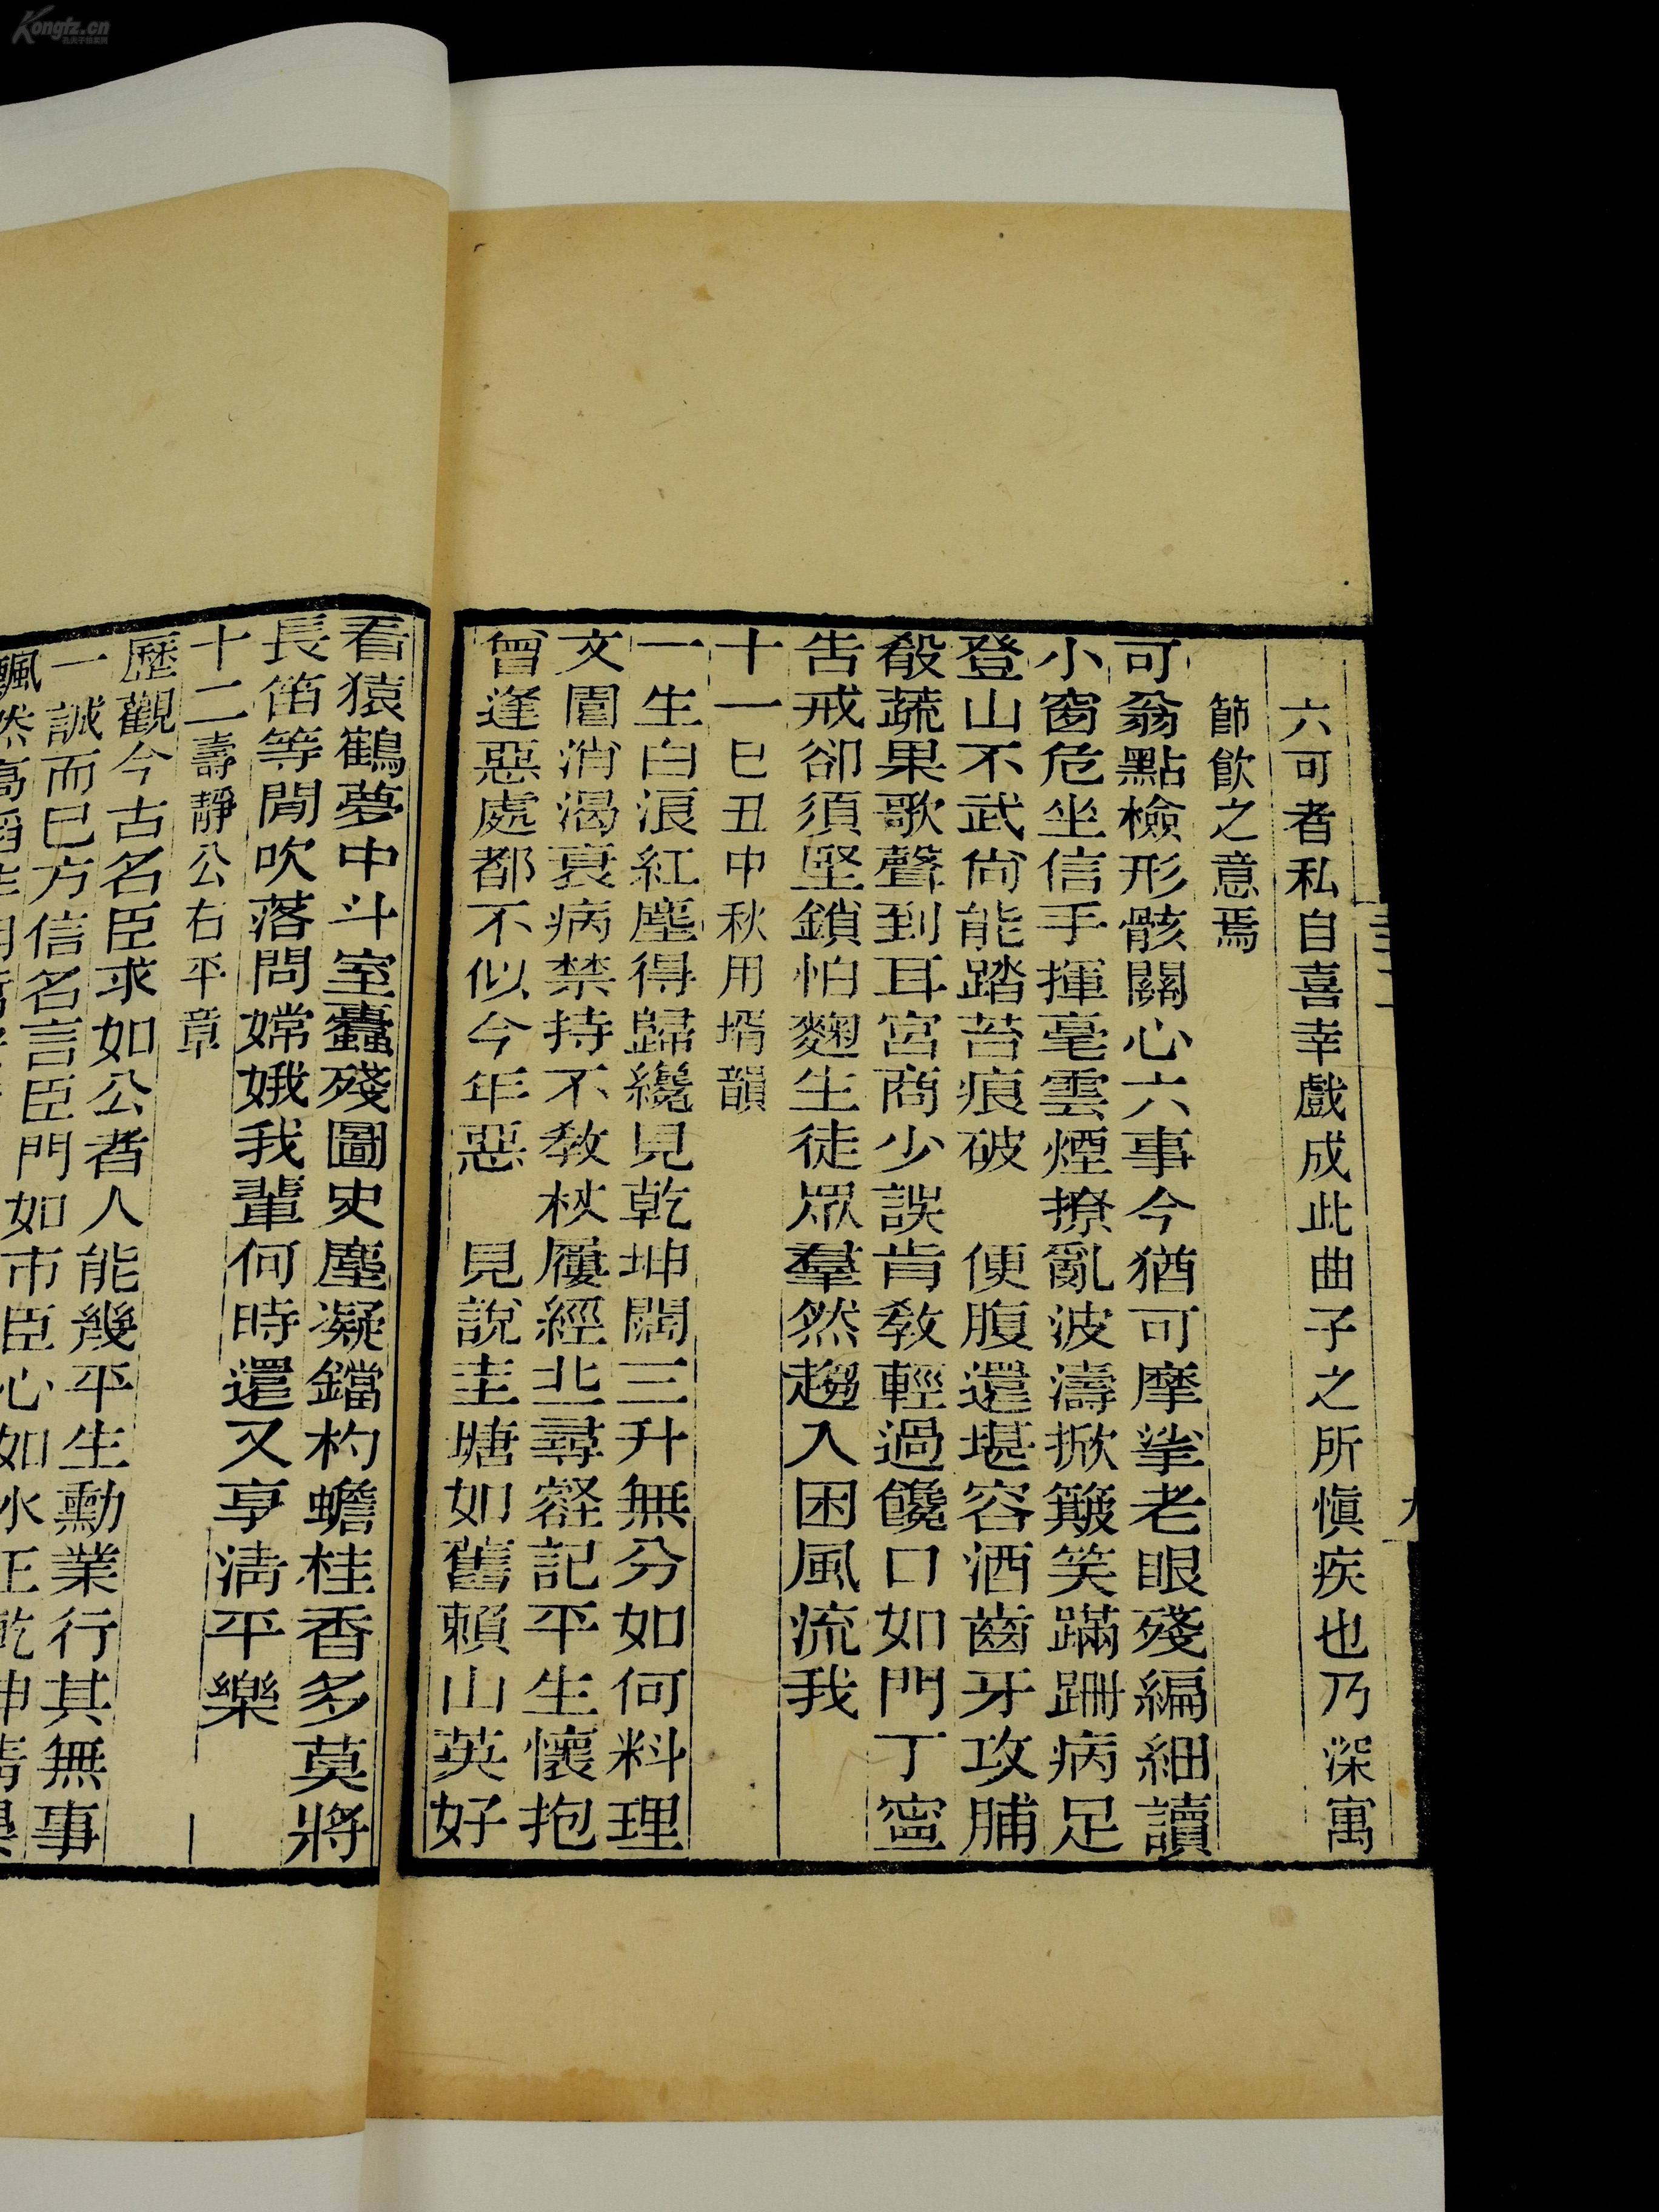 六可者私自喜幸戲成此曲子之所愼疾也乃深寓
節飮之意焉
可翁點檢形骸關心六事今猶可摩挲老眼殘編細讀
小窗危坐信手揮毫雲煙撩亂波濤掀簸笑蹣跚病足
登山不武尙能踏苔痕破　便腹還堪容酒齒牙攻脯
殽蔬果歌聲到耳宮商少誤肯教輕過饞口如門丁寧
告戒卻須堅鎖怕麴生徒眾羣然趨入困風流我
十一巳丑中秋用壻韻
一生白浪紅塵得歸纔見乾坤闊三升無分如何料理
文園消渴衰病禁持不教杖屨經丘尋壑記平生懷抱
曾逢惡處都不似今年惡　見說圭塘如舊賴山英好
看猿鶴夢中斗室蠹殘圖史塵凝鐺杓蟾桂香多莫將
長笛等閒吹落問嫦娥我輩何時還又享淸平樂
十二壽靜公右平章
歷觀今古名臣求如公者人能幾平生勳業行其無事
一誠而已方信名言臣門如市臣心如水正乾坤
飄然高
Kongfz.cn
孔夫子旧书网